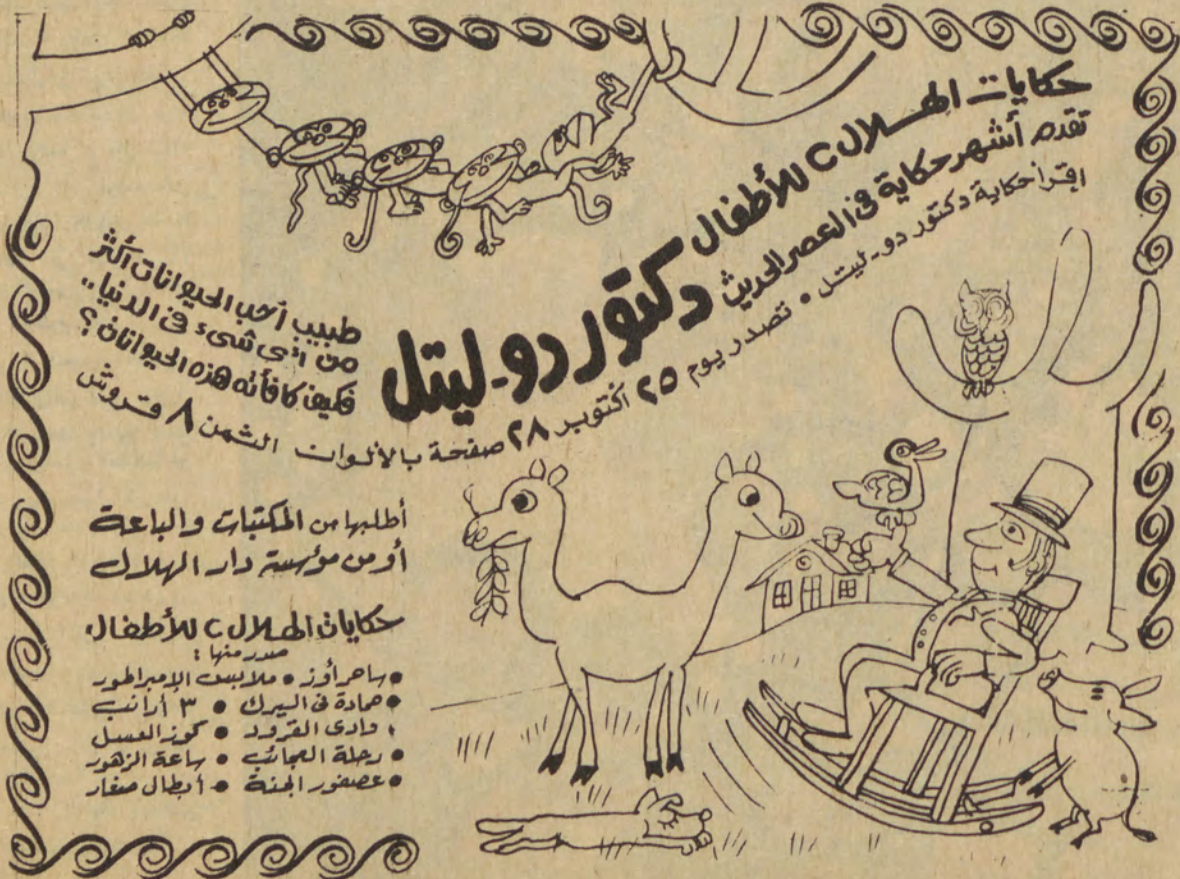 حكايات الهلال للأطفال
تقدم أشهر حكاية في العصر الحديث
اقرأ حكاية دكتور دو-ليتل • تصدر يوم ٢٥ أكتوبر ٢٨ صفحة بالألوان الثمن ٨ قروش
دكتور دو-ليتل
طبيب أحب الحيوانات أكثر
من أى شىء فى الدنيا..
فكيف كافأته هذه الحيوانات؟
أطلبها من المكتبات والباعة
أو من مؤسسة دار الهلال
حكايات الهلال للأطفال
صدر منها:
• ساحر أوز • ملابس الإمبراطور
• حمادة فى السيرك • ٣ أرانب
• وادى القرود • كوز العسل
• رحلة العجائب • ساعة الزهور
• عصفور الجنة • أبطال صغار